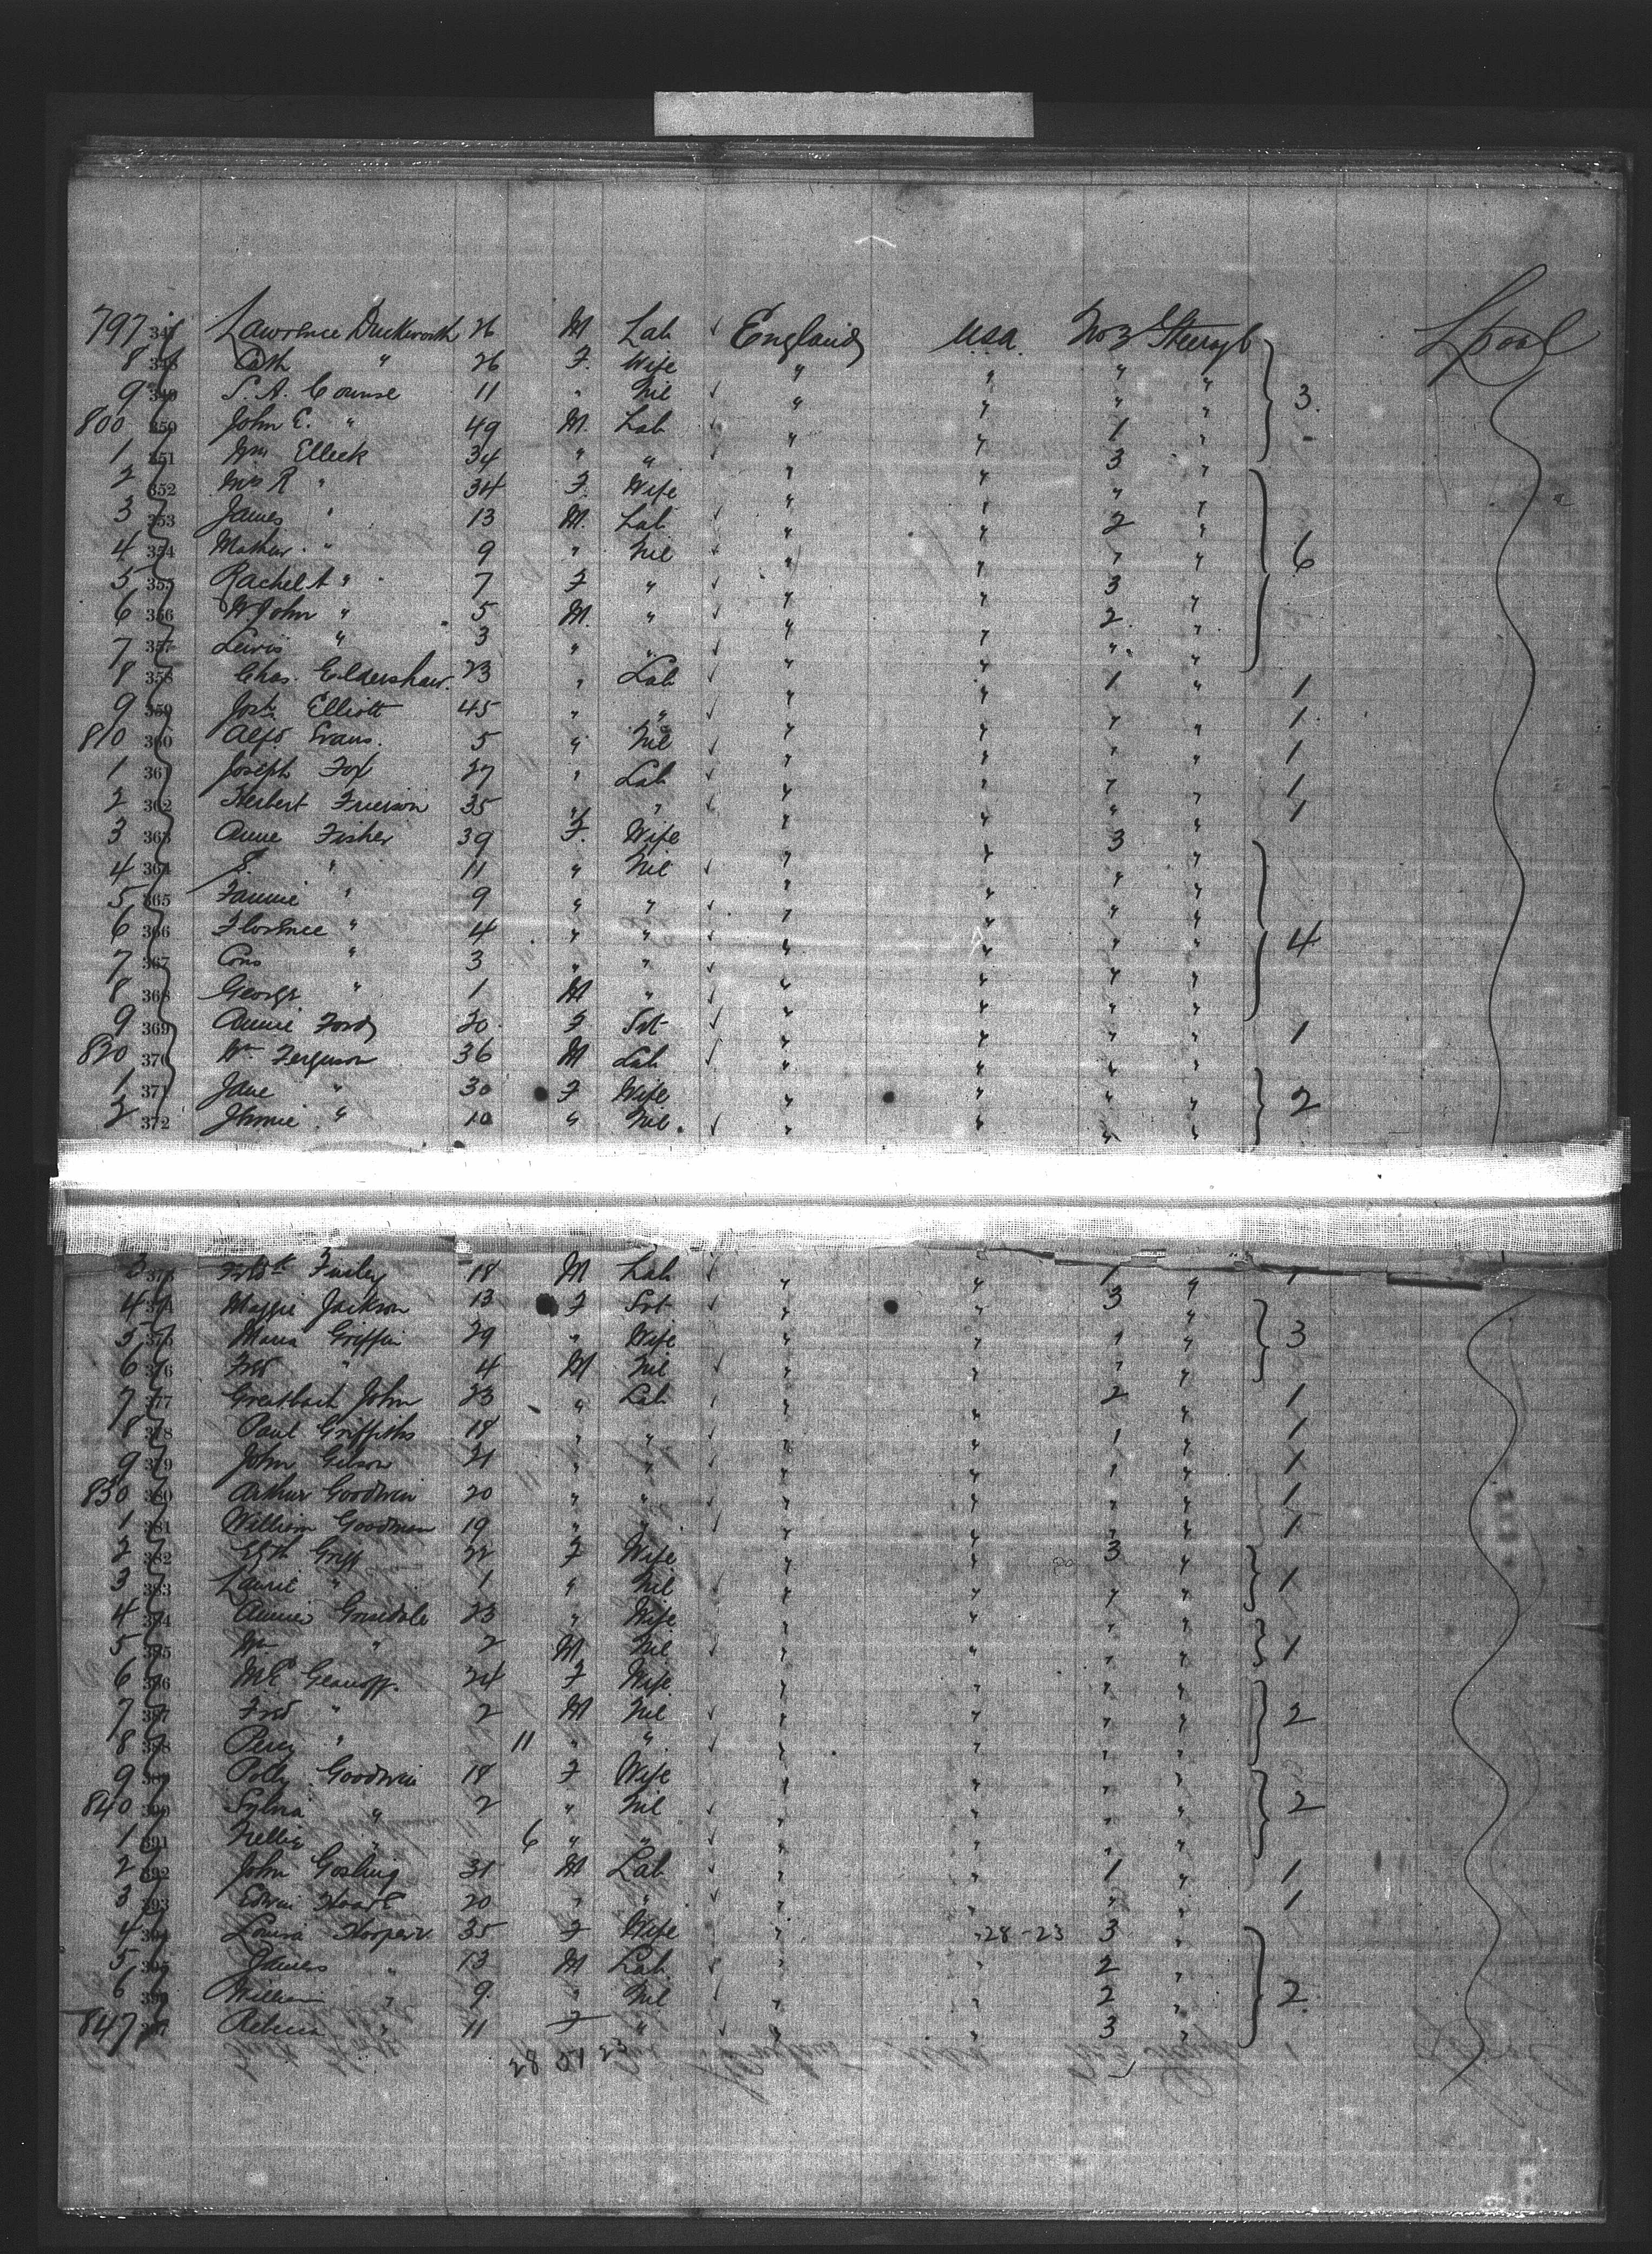 797 347 Lawrence Duckworth 26 M Lab ✓ England USA No 3 Steerage Lpool
8 348 Cath " 26 F. Wife " " " "
9 349 S. A. Counse 11 " Nil ✓ " " " " 3.
800 350 John E. " 49 M. Lab ✓ " " 1 "
1 351 Wm Elleck 34 " " ✓ " " 3 "
2 352 Mrs R " 34 F. Wife " " " "
3 353 James " 13 M. Lab ✓ " " 2 "
4 354 " 9 " Nil ✓ " " " " 6
5 355 Rachel A " 7 F " ✓ " " 3 "
6 356 W. John " 5 M. " ✓ " " 2 "
7 357 Lewis " 3 " " ✓ " " " "
8 358 Chas. Eldershaw. 23 " Lab ✓ " " 1 " 1
9 359 Josh. Elliott 45 " " ✓ " " " " 1
810 360 Alfd Evans. 5 " Nil ✓ " " " " 1
1 361 Joseph Fox 27 " Lab ✓ " " " " 1
2 362 Herbert Frierson 35 " " ✓ " " " " 1
3 363 Annie Fisher 39 F. Wife " " 3 "
4 364 S. " 11 " Nil ✓ " " " "
5 365 Fannie " 9 " " ✓ " " " "
6 366 Florence " 4 " " ✓ " " " " 4
7 367 " 3 " " ✓ " " " "
8 368 George " 1 M " ✓ " " " "
9 369 Annie Ford 20 F Svt ✓ " " " " 1
820 370 Wm Ferguson 36 M Lab ✓ " " " "
1 371 Jane " 30 F Wife " " " " 2
2 372 " 10 " Nil. ✓ " " " "
3 373 Fredk 18 M Lab ✓ " " 1 " 1
4 374 Maggie Jackson 13 F Svt ✓ " " 3 "
5 375 Maria Griffin 29 " Wife " " 1 " 3
6 376 Fred " 4 M Nil ✓ " " " "
7 377 Greatbach John 23 " Lab ✓ " " 2 " 1
8 378 Paul Griffiths 18 " " ✓ " " 1 " 1
9 379 John Gibson 21 " " ✓ " " 1 " 1
830 380 Arthur Goodwin 20 " " ✓ " " " " 1
1 381 William Goodman 19 " " ✓ " " " " 1
2 382 Elzth 22 F Wife " " 3 "
3 383 Laurie " 1 " Nil ✓ " " " " 1
4 384 Annie 23 " Wife " " " "
5 385 Wm " 2 M Nil ✓ " " " " 1
6 386 M E 24 F Wife " " " "
7 387 Fred " 2 M Nil ✓ " " " " 2
8 388 Percy " 11 " " ✓ " " " "
9 389 Polly Goodwin 18 F Wife " " " "
840 390 Sylvia " 2 " Nil ✓ " " " " 2
1 391 Nellie " 6 " " ✓ " " " "
2 392 John Gosling 31 M Lab ✓ " " 1 " 1
3 393 Edwin Hoare 20 " " ✓ " " " " 1
4 394 Louisa Hooper 35 F Wife " " 28-23 3 "
5 395 James " 13 M Lab ✓ " " 2 "
6 396 William " 9 " Nil ✓ " " 2 " 2.
847 397 Rebecca " 11 F " ✓ " " 3 "
28 51 23